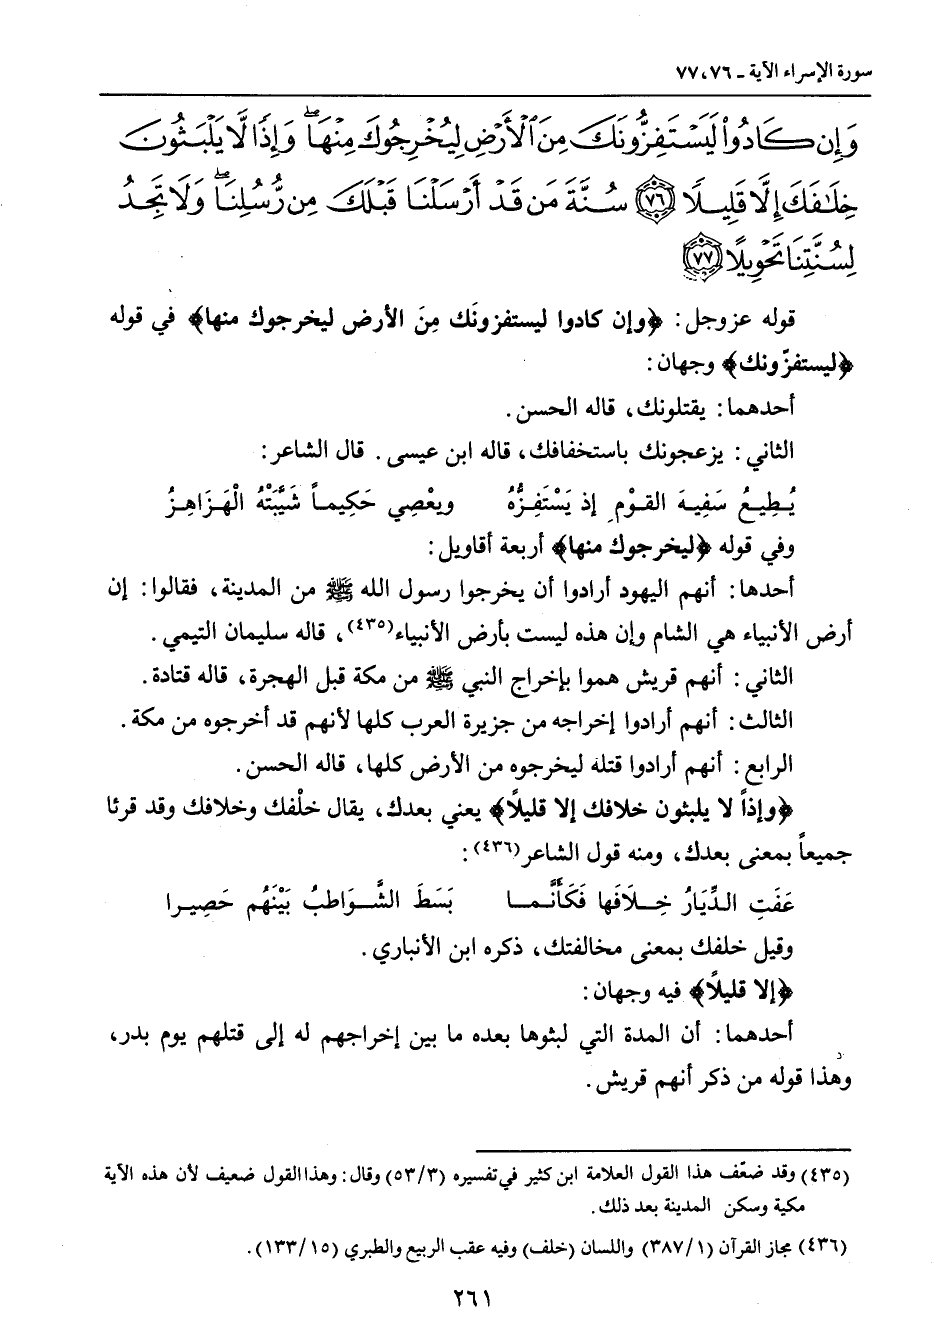 سورة الإسراء الآية ـ ٧٦، ٧٧
وَإِن كَادُواْ لَيَسْتَفِزُّونَكَ مِنَ ٱلْأَرْضِ لِيُخْرِجُوكَ مِنْهَا ۖ وَإِذًا لَّا يَلْبَثُونَ
خِلَـٰفَكَ إِلَّا قَلِيلًا ﴿٧٦﴾ سُنَّةَ مَن قَدْ أَرْسَلْنَا قَبْلَكَ مِن رُّسُلِنَا ۖ وَلَا تَجِدُ
لِسُنَّتِنَا تَحْوِيلًا ﴿٧٧﴾
قوله عز وجل: ﴿وإن كادوا ليستفزونَك مِنَ الأرض ليخرجوك منها﴾ في قوله
﴿ليستفزّونك﴾ وجهان:
أحدهما: يقتلونك، قاله الحسن.
الثاني: يزعجونك باستخفافك، قاله ابن عيسى. قال الشاعر:
يُطِيعُ سَفِيهَ القوْمِ إذ يَسْتَفِزُّهُ ويعْصِي حَكِيماً شَيَّبَتْهُ الْهَزَاهِزُ
وفي قوله ﴿ليخرجوك منها﴾ أربعة أقاويل:
أحدها: أنهم اليهود أرادوا أن يخرجوا رسول الله ﷺ من المدينة، فقالوا: إن
أرض الأنبياء هي الشام وإن هذه ليست بأرض الأنبياء(٤٣٥)، قاله سليمان التيمي.
الثاني: أنهم قريش هموا بإخراج النبي ﷺ من مكة قبل الهجرة، قاله قتادة.
الثالث: أنهم أرادوا إخراجه من جزيرة العرب كلها لأنهم قد أخرجوه من مكة.
الرابع: أنهم أرادوا قتله ليخرجوه من الأرض كلها، قاله الحسن.
﴿وإذاً لا يلبثون خلافك إلا قليلًا﴾ يعني بعدك، يقال خلْفك وخلافك وقد قرئا
جميعاً بمعنى بعدك، ومنه قول الشاعر(٤٣٦):
عَفَتِ الدِّيَارُ خِلَافَها فَكَأَنَّما بَسَطَ الشَّوَاطبُ بَيْنَهُم حَصِيرا
وقيل خلفك بمعنى مخالفتك، ذكره ابن الأنباري.
﴿إلا قليلًا﴾ فيه وجهان:
أحدهما: أن المدة التي لبثوها بعده ما بين إخراجهم له إلى قتلهم يوم بدر،
وهذا قوله من ذكر أنهم قريش.
(٤٣٥) وقد ضعّف هذا القول العلامة ابن كثير في تفسيره (٥٣/٣) وقال: وهذا القول ضعيف لأن هذه الآية
مكية وسكن المدينة بعد ذلك.
(٤٣٦) مجاز القرآن (٣٨٧/١) واللسان (خلف) وفيه عقب الربيع والطبري (١٣٣/١٥).
٢٦١